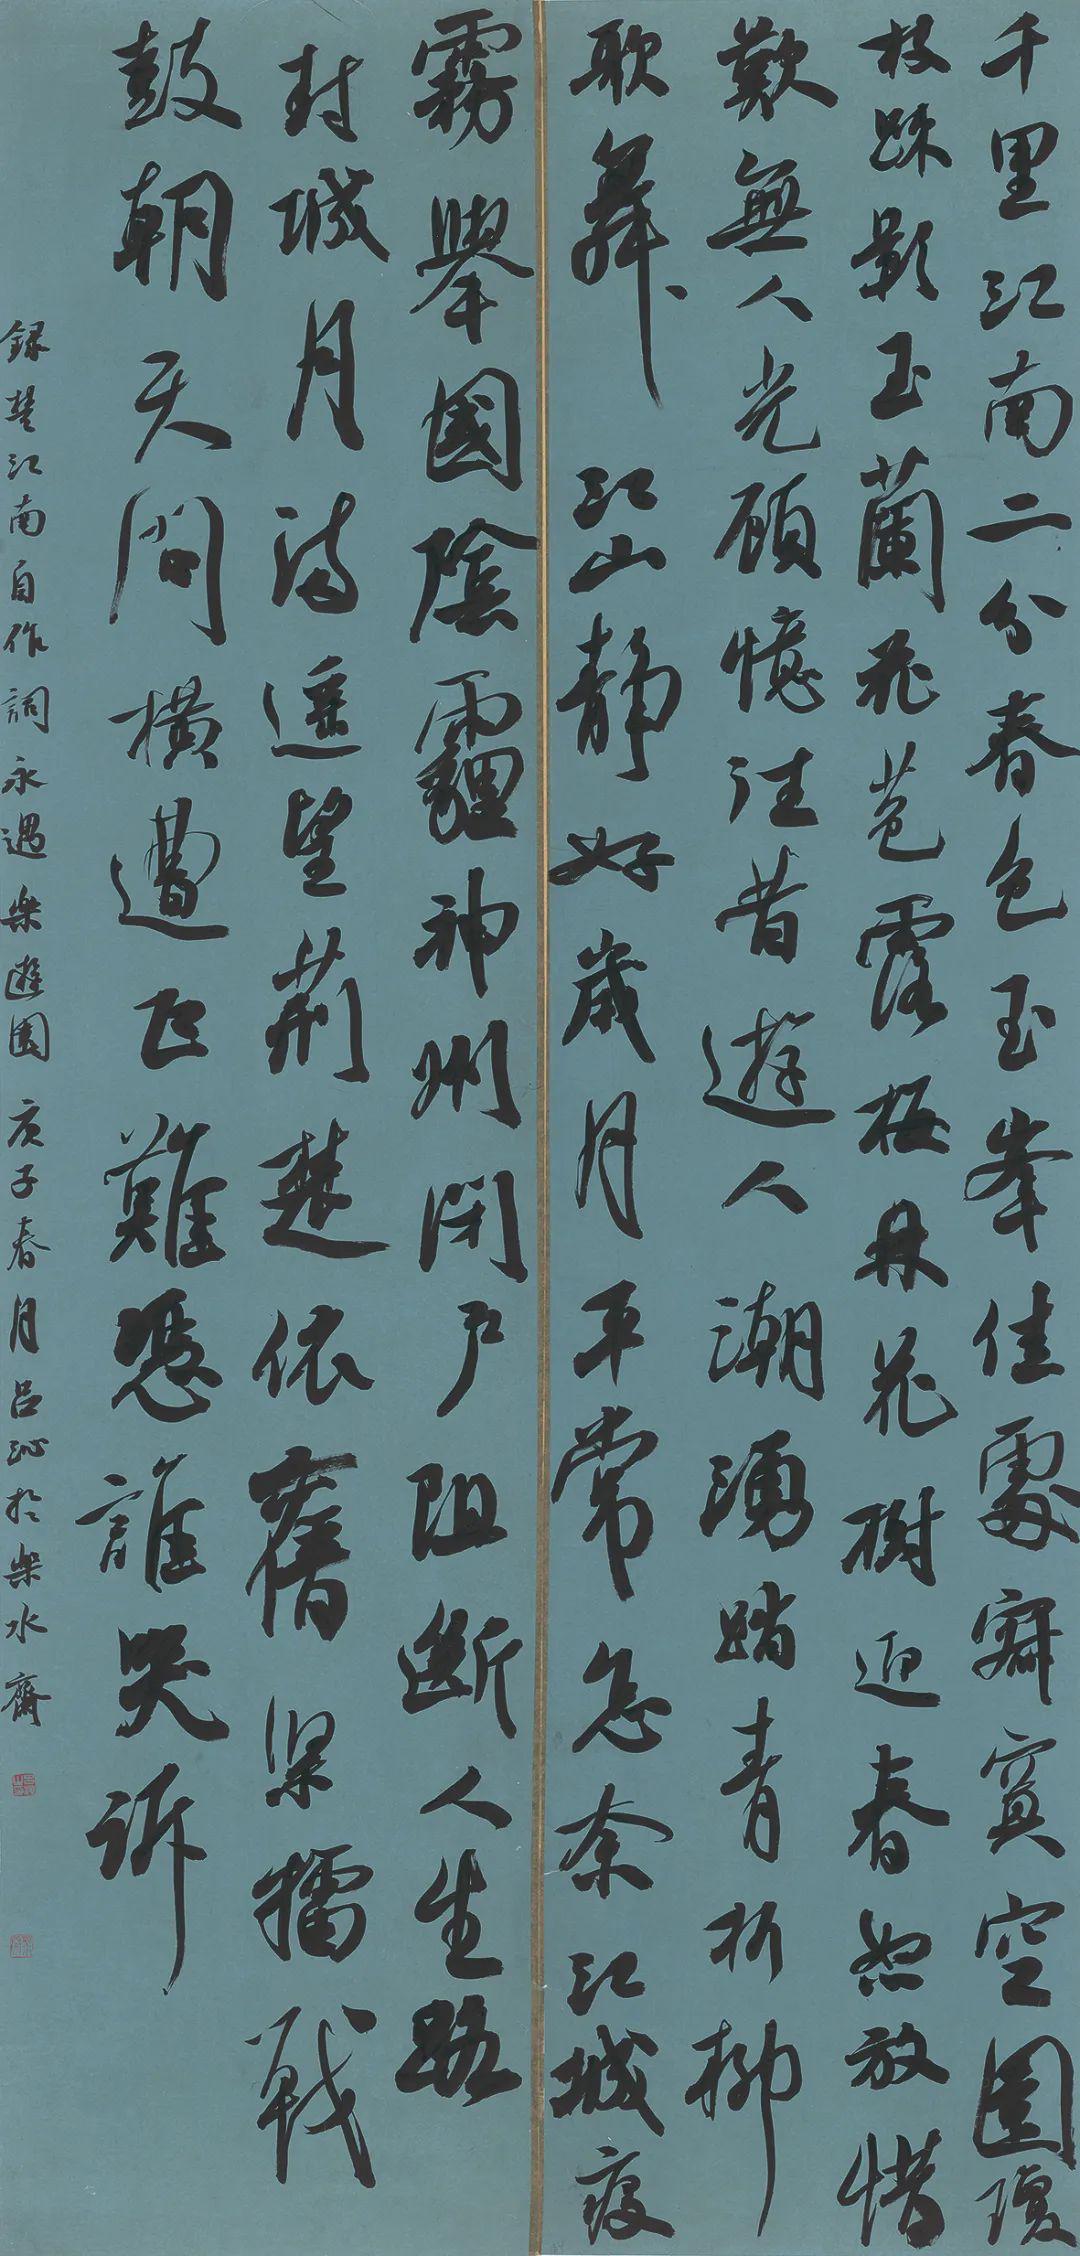 千里江南二分春色玉峯佳處寂寞空園瓊
枝踈影玉蘭花苞露梅林花樹迎春怒放惜
歎無人光顧憶往昔遊人潮湧踏青折柳
歌舞 江山靜好歲月平常怎奈江城疫
霧舉國陰霾神州閉戶阻斷人生路
封城月滿遥望荊楚依舊梁擂戰
鼓朝天問橫遭巨難憑誰哭訴
錄楚江南自作詞永遇樂遊園 庚子春月呂沁於樂水齋